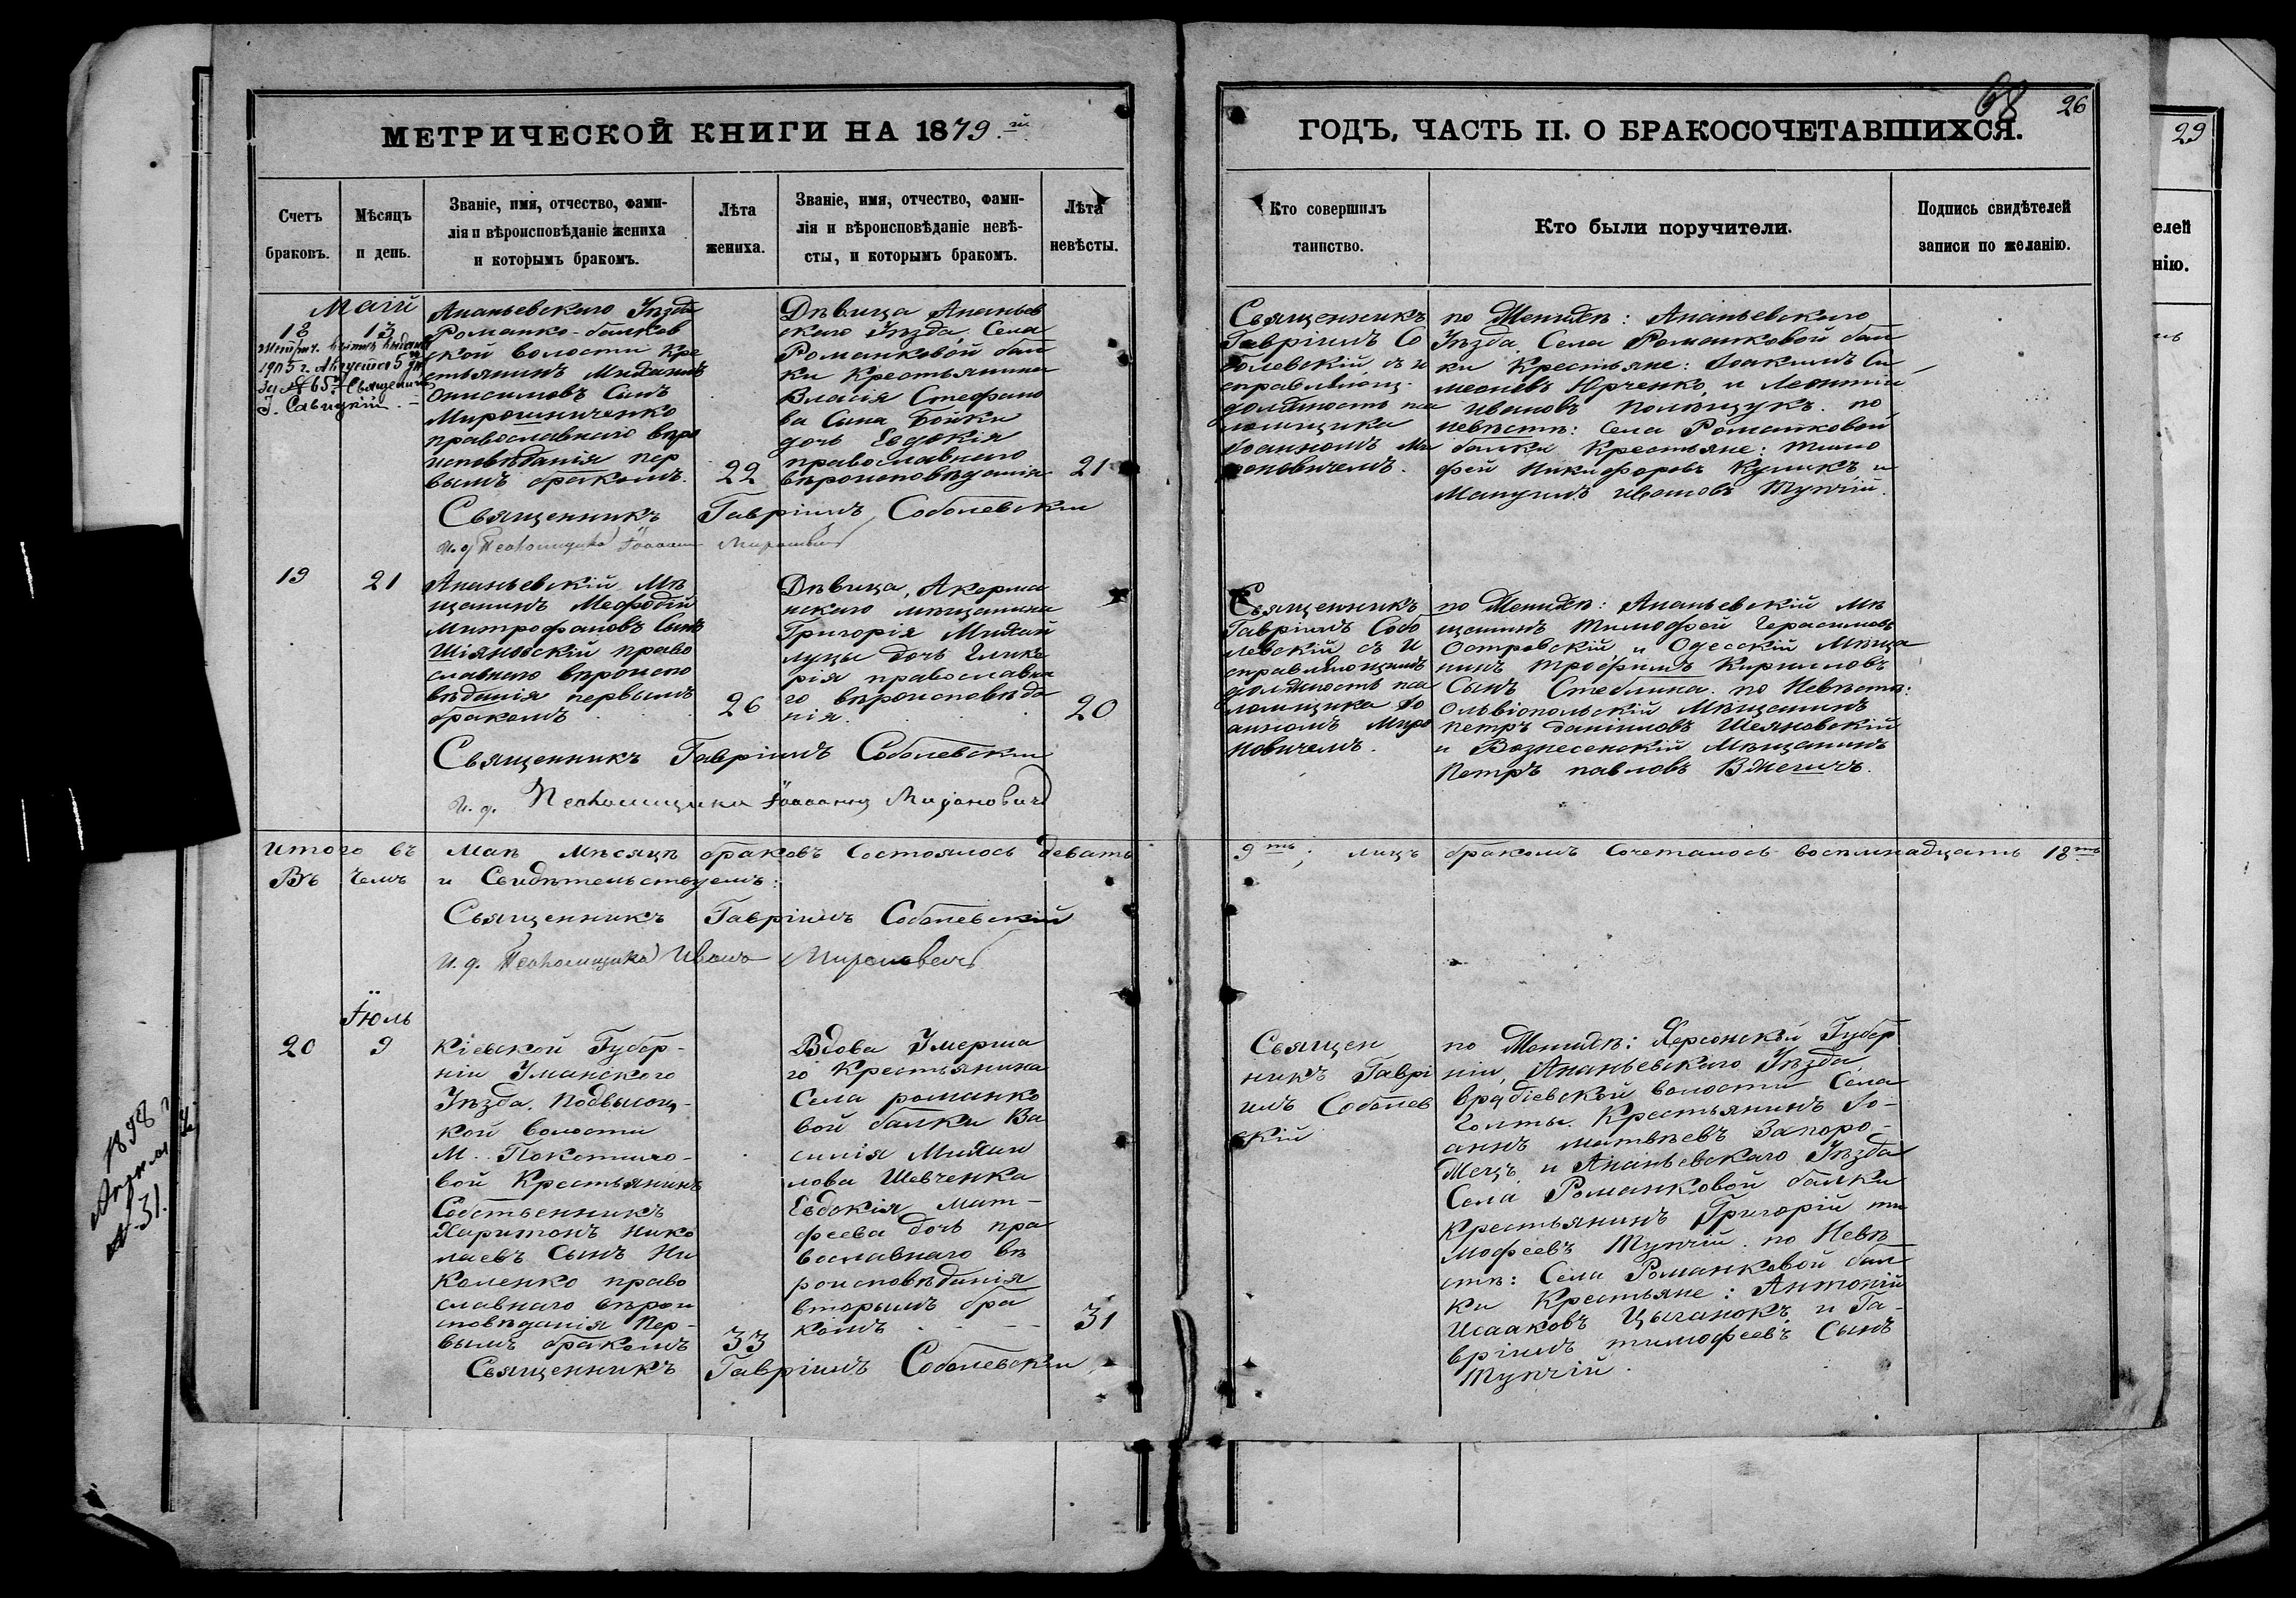 МЕТРИЧЕСКОЙ КНИГИ НА 1879.й
Счетъ
браковъ.
Мѣсяцъ
и день.
Званіе, имя, отчество, фами-
лія и вѣроисповѣданіе жениха
и которымъ бракомъ.
Лѣта
жениха.
Званіе, имя, отчество, фами-
лія и вѣроисповѣданіе невѣ-
сты, и которымъ бракомъ.
Лѣта
невѣсты.
Маій
18
13
1905 г. Августа 5
за № 65 Священникъ
І. Савицкій.
Ананьевскаго Уѣзда
Романко-балков
ской волости Кре
стьянинъ Михаилъ
Онисимовъ Сынъ
Мирошниченко
православнаго веро
исповѣданія пер
вымъ бракомъ.
22
Дѣвица Ананьев
скаго Уѣзда, Села
Романковой бал
ки Крестьянина
Власія Стефано
ва Сына Бойки
дочь Евдокія
православнаго
вѣроисповѣданія
21
Священникъ Гавріилъ Соболевскій
И. д. Псаломщика Іоаннъ
19
21
Ананьевскій Мѣ
щанинъ Мефодій
Митрофановъ Сынъ
Шіяновскій право
славнаго вѣроиспо
вѣданія первымъ
бракомъ
26
Дѣвица, Акерма
нскаго мѣщанина
Григорія Михай
луцы дочь Глике
рія православна
го вѣроисповѣда
нія.
20
Священникъ Гавріилъ Соболевскій
И. д. Псаломщика Іоаннъ Мироновичъ
Итого въ Маѣ Мѣсяцѣ браковъ Состоялось девять
Въ чемъ и Свидѣтельствуемъ:
Священникъ Гавріилъ Соболевскій
И. д. Псаломщика Иванъ Мироновичъ
Іюль
20
9
Кіевской Губер-
ніи Уманскаго
Уѣзда. Подвысоц-
кой волости
М. Покотило-
вой Крестьянинъ
Собственникъ
Харитонъ Нико
лаевъ Сынъ Ни
коленко право
славнаго вѣрои
сповѣданія Пер-
вымъ бракомъ
33
Вдова Умерша
го Крестьянина
Села романко
вой балки Ва
силія Михаи
лова Шевченка
Евдокія Мат-
феева дочь пра
вославнаго вѣ
роисповѣданія
вторымъ бра
комъ
31
Священникъ Гавріилъ Соболевскій
ГОДЪ, ЧАСТЬ II. О БРАКОСОЧЕТАВШИХСЯ.
68
26
Кто совершилъ
таинство.
Кто были поручители.
Подпись свидѣтелей
записи по желанію.
Священникъ
Гавріилъ Со
болевскій съ и
справляющ.
должность пса
ломщика
Іоанномъ Ми
роновичемъ.
по Женихѣ: Ананьевскаго
Уѣзда Села Романковой бал
ки Крестьяне: Іоакимъ Си
меоновъ Юрченко, и Леонтій
Ивановъ Полещукъ. по
невѣстѣ: Села Романковой
балки Крестьяне: Тимо
фей Никифоровъ Куликъ, и
Мануилъ Ивановъ Тупчій.
Священникъ
Гавріилъ Собо
левскій съ И
справляющимъ
должность пса
ломщика Іо
анномъ Миро
новичемъ.
по Женихѣ: Ананьевскій мѣ
щанинъ Тимофей Герасимовъ
Островскій, и Одесскій Мѣща
нинъ Трофимъ Кирилловъ
Сынъ Стеблина. по Невѣстѣ:
Ольвіопольскій Мѣщанинъ
Петръ Даніиловъ Шеяновскій
и Вознесенскій Мѣщанинъ
Петръ Павловъ
9ть; лицъ бракомъ Сочеталось восемнадцать 18ть
Священ
никъ Гаврі
илъ Соболев
скій
по Женихѣ: Херсонской Губер
ніи, Ананьевскаго Уѣзда,
Врадіевской волости Села
Голты. Крестьянинъ Іо-
аннъ Матвѣевъ Запоро-
жецъ, и Ананьевскаго Уѣзда
Села Романковой балки
Крестьянинъ Григорій ти
мофеевъ Тупчій. по Невѣ
стѣ: Села Романковой бал
ки Крестьяне: Антоній
Исааковъ Цыганокъ, и Га-
вріилъ тимофеевъ Сынъ
Тупчій.
29
елей
нію.
1898
№ 31.